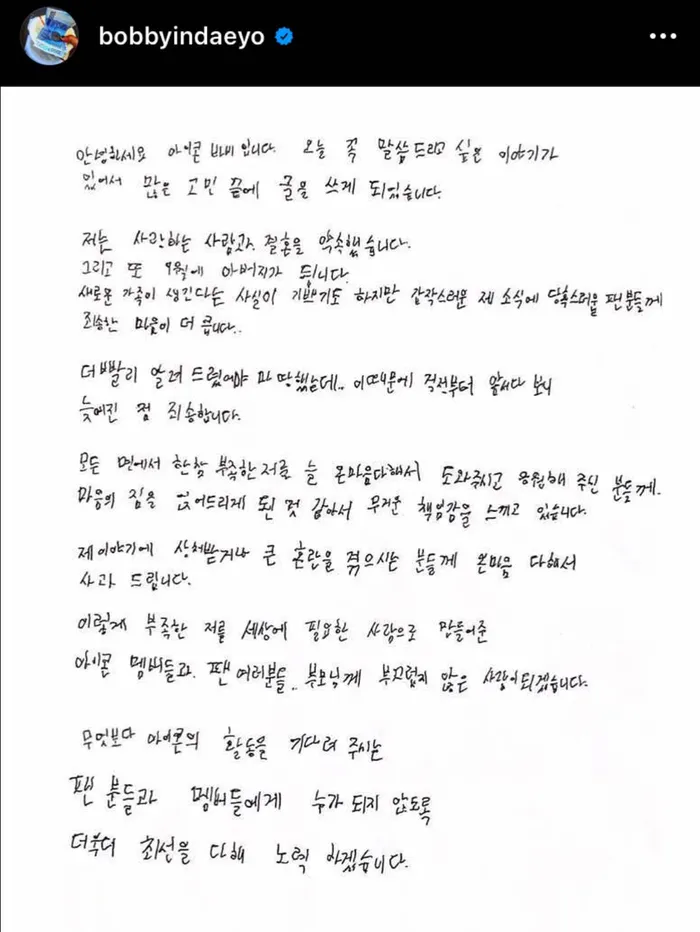 bobbyindaeyo
안녕하세요 아이콘 바비입니다. 오늘 꼭 말씀드리고 싶은 이야기가
있어서 많은 고민 끝에 글을 쓰게 되었습니다.
저는 사랑하는 사람과 결혼을 약속했습니다.
그리고 또 9월에 아버지가 됩니다.
새로운 가족이 생긴다는 사실이 기쁘기도 하지만 갑작스러운 제 소식에 당혹스러울 팬분들께
죄송한 마음이 더 큽니다..
더 빨리 알려 드렸어야 마땅했는데.. 이 때문에 걱정부터 앞서다 보니
늦어진 점 죄송합니다.
모든 면에서 한참 부족한 저를 늘 온마음다해서 도와주시고 응원해 주신 분들께.
마음의 짐을 얹어드리게 된 것 같아서 무거운 책임감을 느끼고 있습니다.
제 이야기에 상처받거나 큰 혼란을 겪으시는 분들께 온마음 다해서
사과 드립니다.
이렇게 부족한 저를 세상에 필요한 사람으로 만들어준
아이콘 멤버들과 팬 여러분들.. 부모님께 부끄럽지 않은 사람이 되겠습니다.
무엇보다 아이콘의 활동을 기다려 주시는
팬 분들과 멤버들에게 누가 되지 않도록
더욱더 최선을 다해 노력 하겠습니다.